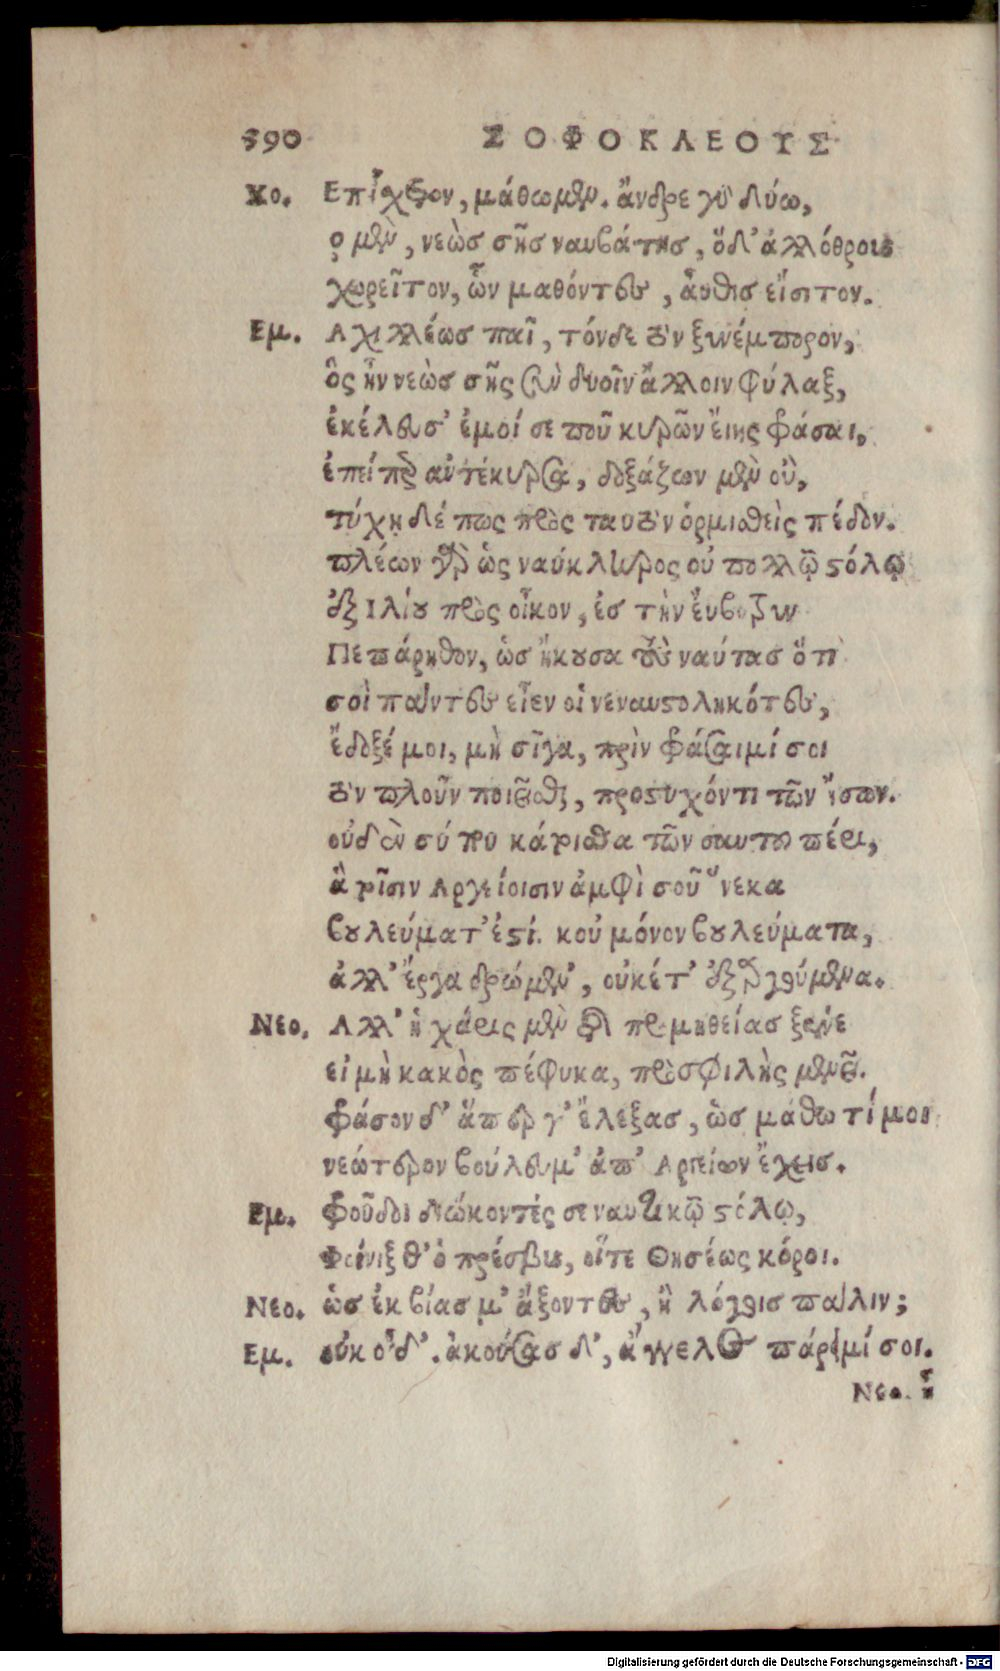 590 ΣΟΦΟΚΛΕΟΥΣ
Χο. Επίσχετον, μάθωμεν. ἄνδρε γὸ δύω,
ο μὲν, νεὼσ σῆσ ναυβάτησ, ὅδ' ἀλλόθρους
χωρεῖτον, ὧν μαθόντες, ἆυθισ εἴσιτον.
Εμ. Αχιλλέωσ παῖ, τόνδε τὸν ξυνέμπορον,
ὃς ἦν νεὼσ σῆς σὺν δυοῖν ἄλλοιν φύλαξ,
ἐκέλευσ' ἐμοί σε ποῦ κυρῶν ἔιης φάσαι,
ἐπείπερ αὐτέκυρσα, δοξάζων μὲν οὐ,
τύχῃ δέ πως πρὸς ταυτὸν ὁρμισθεὶς πέδον.
πλέων γὰρ ὡς ναύκληρος οὐ πολλῷ στόλῳ
ἐξ Ιλίου πρὸς οἶκον, ἐσ τὴν ἔυβοτρυν
Πεπάρηθον, ὡσ ἤκουσα τοὺς ναύτασ ὅτι
σοὶ πάντες εἶεν οἱ νεναυστοληκότες,
ἔδοξέ μοι, μὴ σῖγα, πρὶν φράσαιμί σοι
τὸν πλοῦν ποιεῖσθαι, προστυχόντι τῶν ἴσων.
οὐδὲν σύ που κάτοισθα τῶν σαυτοῦ πέρι,
ἃ τοῖσιν Αργείοισιν ἀμφὶ σοῦ ὕνεκα
βουλεύματ' ἐστί. κοὐ μόνον βουλεύματα,
ἀλλ' ἔργα δρώμεν', οὐκέτ' ἐξαργούμενα.
Νεο. Αλλ' ἡ χάρις μὲν τῆς προμηθείασ ξένε
εἰ μὴ κακὸς πέφυκα, πρὸσφιλὴς μενεῖ.
φράσον δ' ἅπερ γ' ἔλεξασ, ὡσ μάθω τί μοι
νεώτερον βούλευμ' ἀπ' Αργείων ἔχεισ.
Εμ. φροῦδοι διώκοντές σε ναυτικῷ στόλῳ,
Φοίνιξ θ' ὁ πρέσβυς, οἵτε Θησέως κόροι.
Νεο. ὡσ ἐκ βίας μ' ἄξοντες, ἢ λόγοισ πάλιν;
Εμ. οὐκ οἶδ'. ἀκούσας δ', ἄγγελος πάρειμί σοι.
Νεο. ἦ
Digitalisierung gefördert durch die Deutsche Forschungsgemeinschaft - DFG